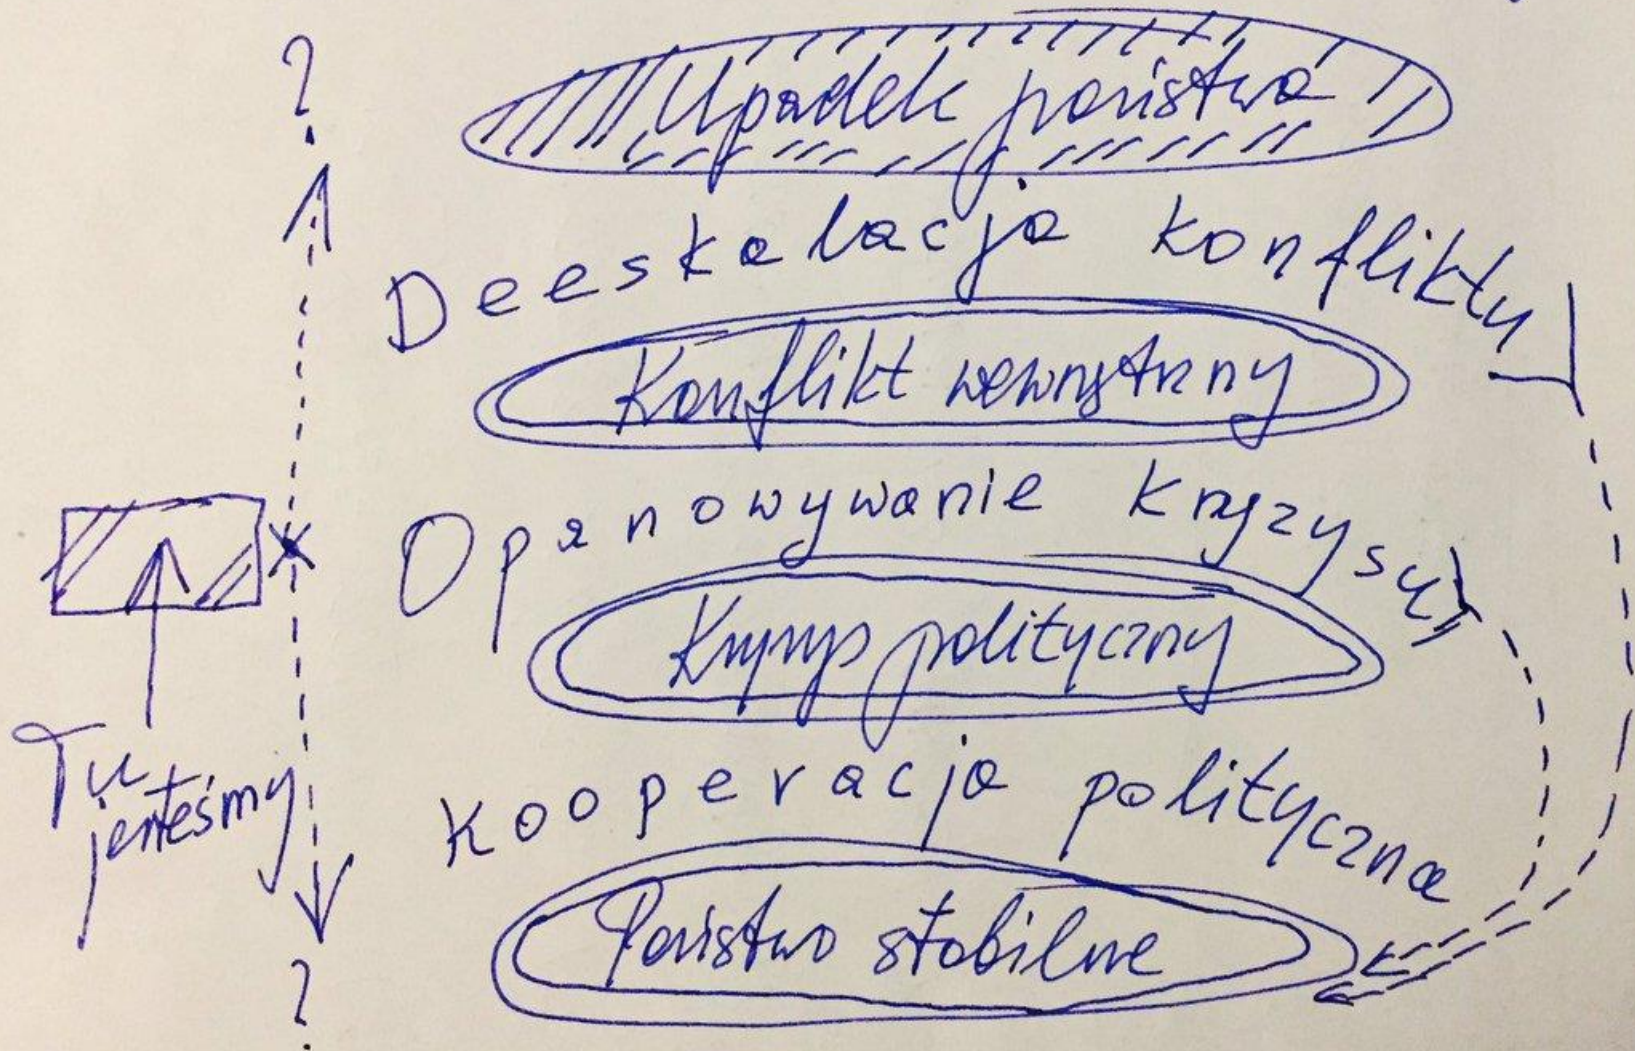 ?
Upadek państwa
Deeskalacja konfliktu
Konflikt wewnętrzny
Opanowywanie kryzysu
Kryzys polityczny
Tu jesteśmy
Kooperacja polityczna
Państwo stabilne
?